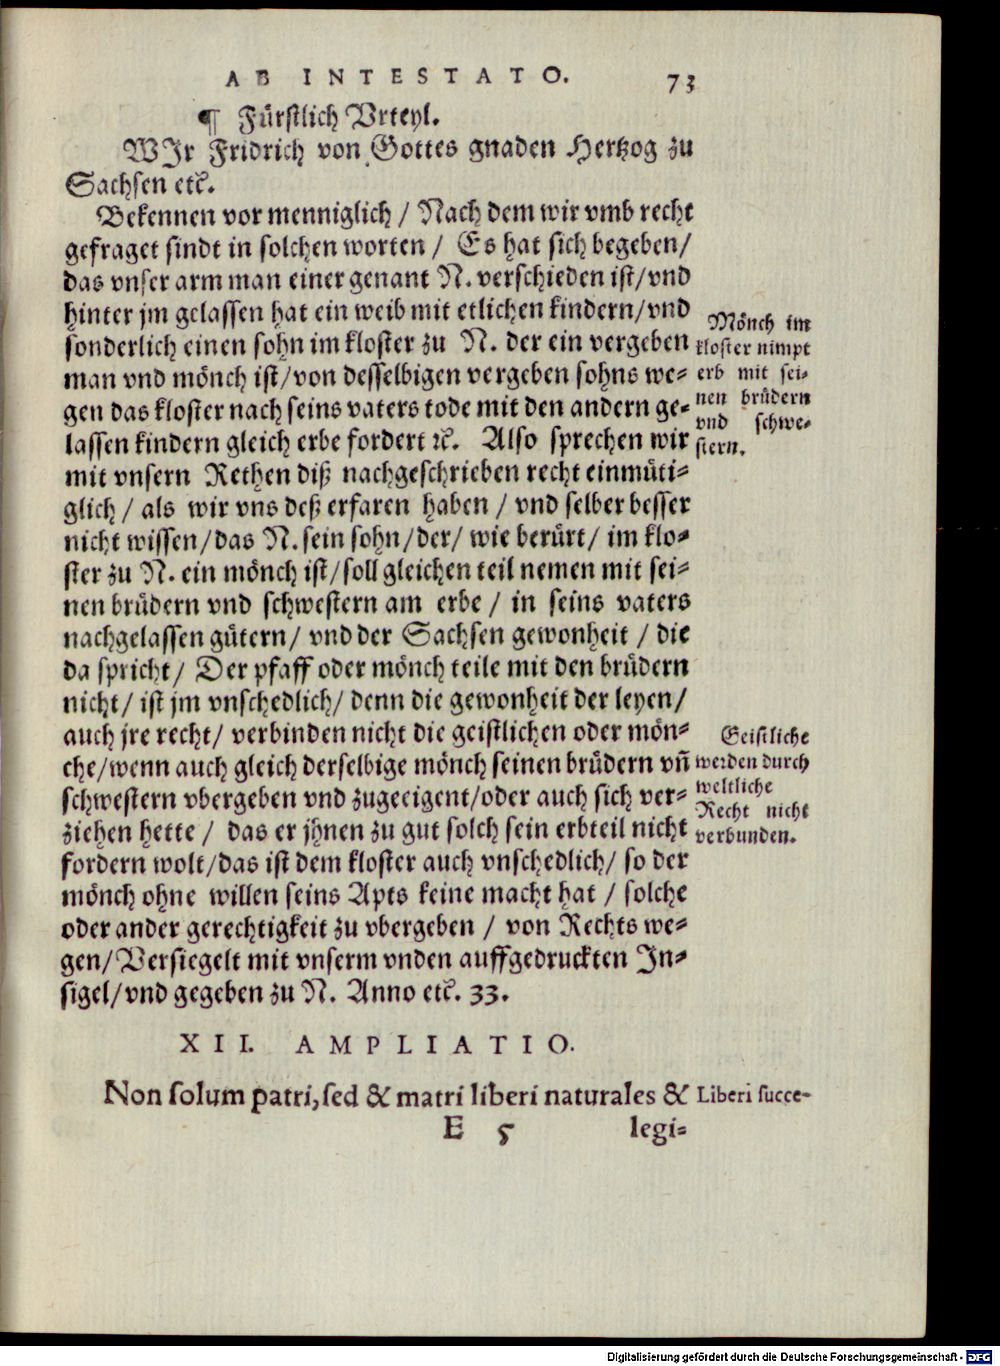 AB INTESTATO. 73
¶ Fürstlich Vrteyl.
WJr Fridrich von Gottes gnaden Hertzog zu
Sachsen etc̃.
Bekennen vor menniglich / Nach dem wir vmb recht
gefraget sindt in solchen worten / Es hat sich begeben/
das vnser arm man einer genant N. verschieden ist/vnd
hinter jm gelassen hat ein weib mit etlichen kindern/vnd
sonderlich einen sohn im kloster zu N. der ein vergeben
man vnd mönch ist/von desselbigen vergeben sohns we-
gen das kloster nach seins vaters tode mit den andern ge-
lassen kindern gleich erbe fordert ꝛc̃. Also sprechen wir
mit vnsern Rethen diß nachgeschrieben recht einmüti-
glich / als wir vns deß erfaren haben / vnd selber besser
nicht wissen/das N. sein sohn/der/ wie berürt/ im klo-
ster zu N. ein mönch ist/soll gleichen teil nemen mit sei-
nen brüdern vnd schwestern am erbe / in seins vaters
nachgelassen gütern/ vnd der Sachsen gewonheit / die
da spricht/ Der pfaff oder mönch teile mit den brüdern
nicht/ ist jm vnschedlich/ denn die gewonheit der leyen/
auch jre recht/ verbinden nicht die geistlichen oder mön-
che/wenn auch gleich derselbige mönch seinen brüdern vñ
schwestern vbergeben vnd zugeeigent/oder auch sich ver-
ziehen hette / das er jhnen zu gut solch sein erbteil nicht
fordern wolt/das ist dem kloster auch vnschedlich/ so der
mönch ohne willen seins Apts keine macht hat / solche
oder ander gerechtigkeit zu vbergeben / von Rechts we-
gen/Versiegelt mit vnserm vnden auffgedruckten In-
sigel/vnd gegeben zu N. Anno etc̃. 33.
Mönch im
kloster nimpt
erb mit sei-
nen brüdern
vnd schwe-
stern.
Geistliche
werden durch
weltliche
Recht nicht
verbunden.
XII. AMPLIATIO.
Non solum patri, sed & matri liberi naturales &
Liberi succe-
E 5 legi-
Digitalisierung gefördert durch die Deutsche Forschungsgemeinschaft - DFG